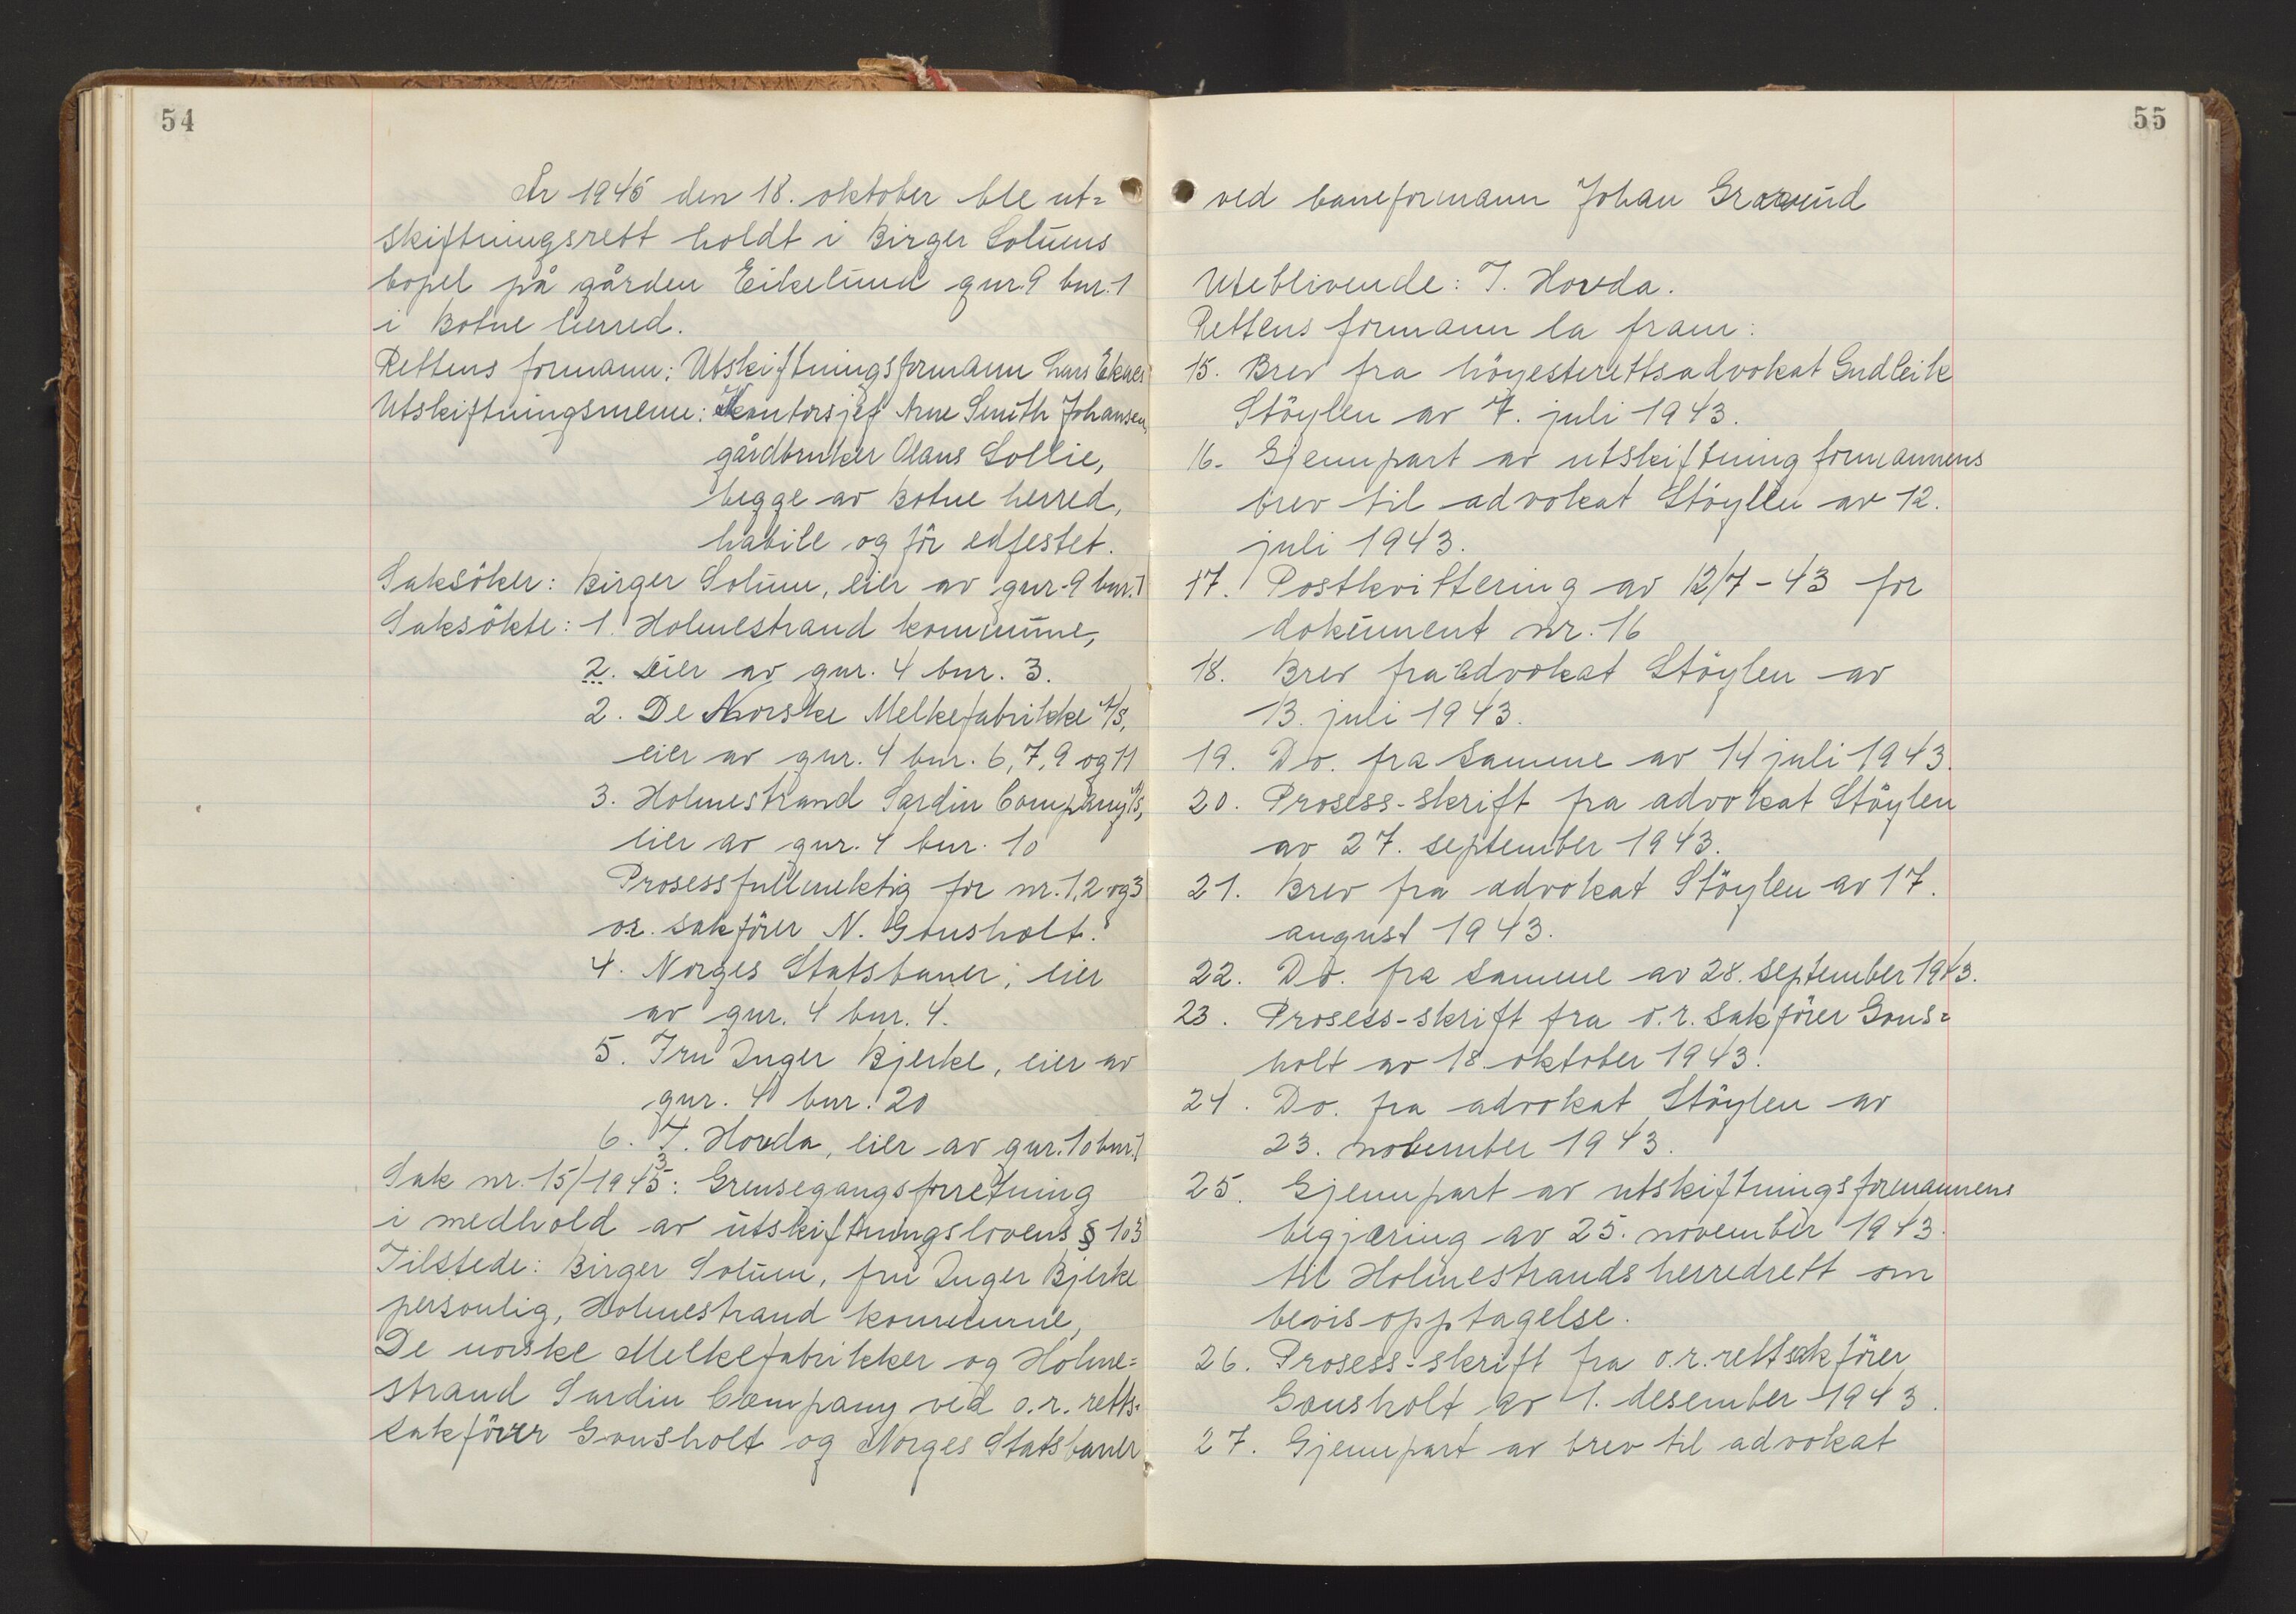 54
År 1945 den 18. oktober ble ut=
skiftningsrett holdt i Birger Solums
bopel på gården Eikelund gnr. 9 bnr. 1
i Botne herred.
Rettens formann: Utskiftningsformann Lars Eknes
Utskiftningsmenn: Kontorsjef Arne Smith Johansen,
gårdbruker Olaus Sollie,
begge av Botne herred,
habile og för edfestet.
Saksöker: Birger Solum, eier av gnr. 9 bnr. 1
Saksökte: 1. Holmestrand kommune,
2. Eier av gnr. 4 bnr. 3.
2. De Norske Melkefabrikke A/S,
eier av gnr. 4 bnr. 6, 7, 9 og 11
3. Holmestrand Sardin Company A/S,
eier av gnr. 4 bnr. 10
Prosessfullmektig for nr. 1, 2 og 3
or. sakförer N. Gausholt.
4. Norges Statsbaner, eier
av gnr. 4 bnr. 4.
5. Fru Inger Bjerke, eier av
gnr. 4 bnr. 20
6. T. Hovda, eier av gnr. 10 bnr. 1
Sak nr. 15/1943: Grensegangsforretning
i medhold av utskiftningslovens § 103
Tilstede: Birger Solum, fru Inger Bjerke
personlig, Holmestrand kommune,
De norske Melkefabrikker og Holme=
strand Sardin Company ved o.r. retts=
sakförer Gausholt og Norges Statsbaner
55
ved baneformann Johan
Uteblivende: T. Hovda.
Rettens formann la fram:
15. Brev fra höyesterettsadvokat Gudleik
Stöylen av 7. juli 1943.
16. Gjennpart av utskiftning formannens
brev til advokat Stöylen av 12.
juli 1943.
17. Postkvittering av 12/7-43 for
dokument nr. 16
18. Brev fra advokat Stöylen av
13. juli 1943.
19. Do. fra samme av 14 juli 1943.
20. Prosess-skrift fra advokat Stöylen
av 27. september 1943.
21. Brev fra advokat Stöylen av 17.
august 1943.
22. Do. fra samme av 28. september 1943.
23. Prosess-skrift fra o.r. sakförer Gaus=
holt av 18 oktober 1943.
24. Do. fra advokat Stöylen av
23. november 1943.
25. Gjennpart av utskiftningsformannens
begjæring av 25. november 1943.
til Holmestrands herredrett om
bevisopptagelse.
26. Prosess-skrift fra o.r. rettsakförer
Gausholt av 1. desember 1943.
27. Gjennpart av brev til advokat